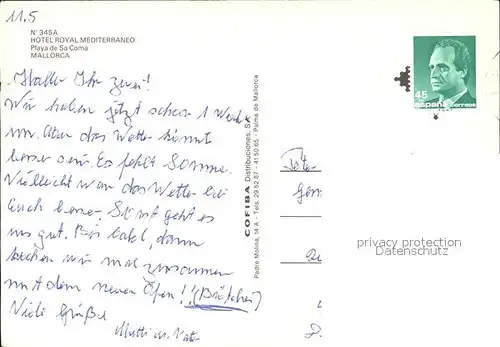 11.5
N° 345A
HOTEL ROYAL MEDITERRANEO
Playa de Sa Coma
MALLORCA
Hallo Ihr zwei!
Wir haben jetzt schon 1 Woche
um. Aber das Wetter könnt
besser sein. Es fehlt Sonne.
Vielleicht war das Wetter bei
Euch besser. Sonst geht es
uns gut. Bis bald, dann
backen wir mal zusammen
mit dem neuen Ofen!! (Brötchen)
Viele Grüße
Mutti u. Vater
COFIBA Distribuciones, S.A.
Padre Molina, 14 A - Tels. 29 52 87 - 41 50 65 - Palma de Mallorca
45
españa correos
privacy protection
Datenschutz